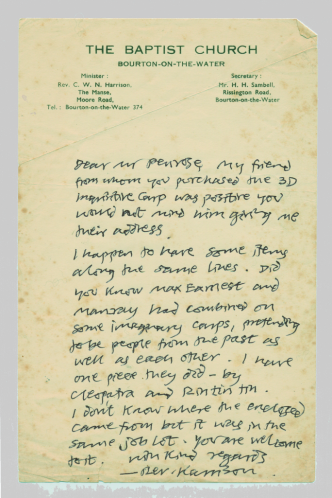 THE BAPTIST CHURCH
BOURTON-ON-THE-WATER
Minister :
Rev. C. W. N. Harrison,
The Manse,
Moore Road,
Tel. : Bourton-on-the-Water 374
Secretary :
Mr. H. H. Sambell,
Rissington Road,
Bourton-on-the-Water
Dear Mr Penrose, my friend
from whom you purchased the 3D
Inquisitive Carp was positive you
would not mind him giving me
their address.
I happen to have some items
along the same lines. Did
you know Max Earnest and
Manray had combined on
some imaginary carps, pretending
to be people from the past as
well as each other. I have
one piece they did - by
Cleopatra and Rintin tin.
I don't know where the enclosed
came from but it was in the
same job lot. You are welcome
to it. with kind regards